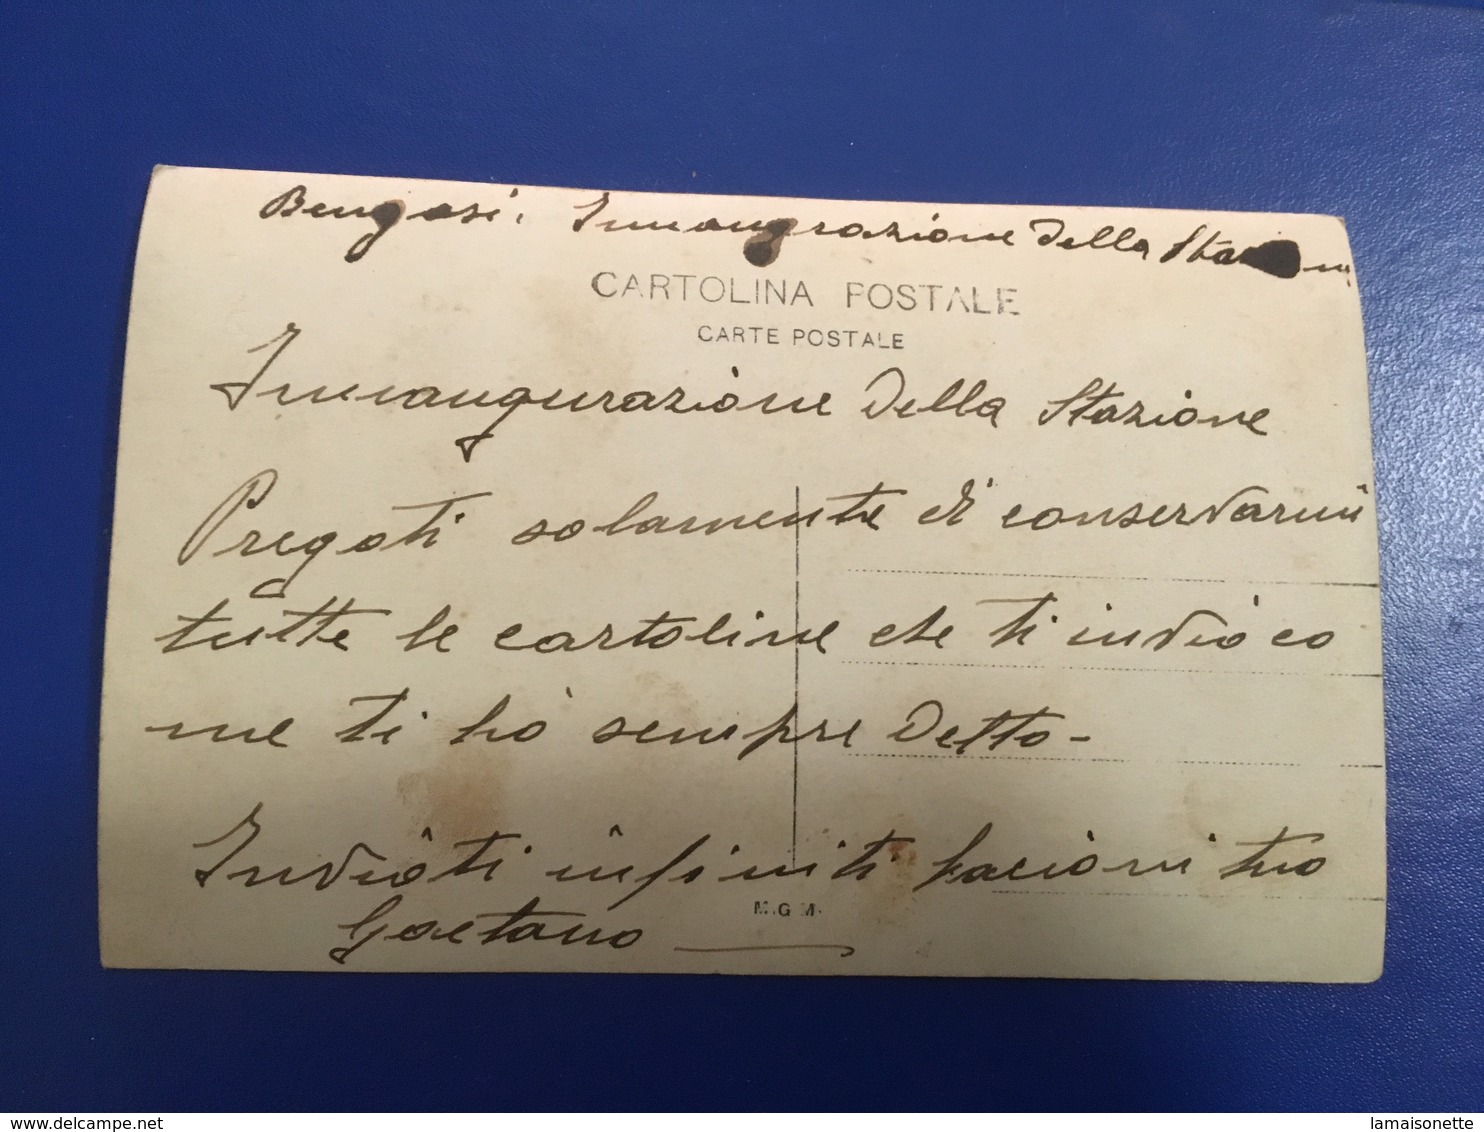 Bengasi. Innaugrazione Della
CARTOLINA POSTALE
CARTE POSTALE
Innaugurazione Della Stazione
Pregoti solamente di conservarmi
tutte le cartoline che ti invio co
me ti hò sempre Detto-
Invioti infiniti bacioni tuo
Gaetano
M.G.M.
lamaisonette